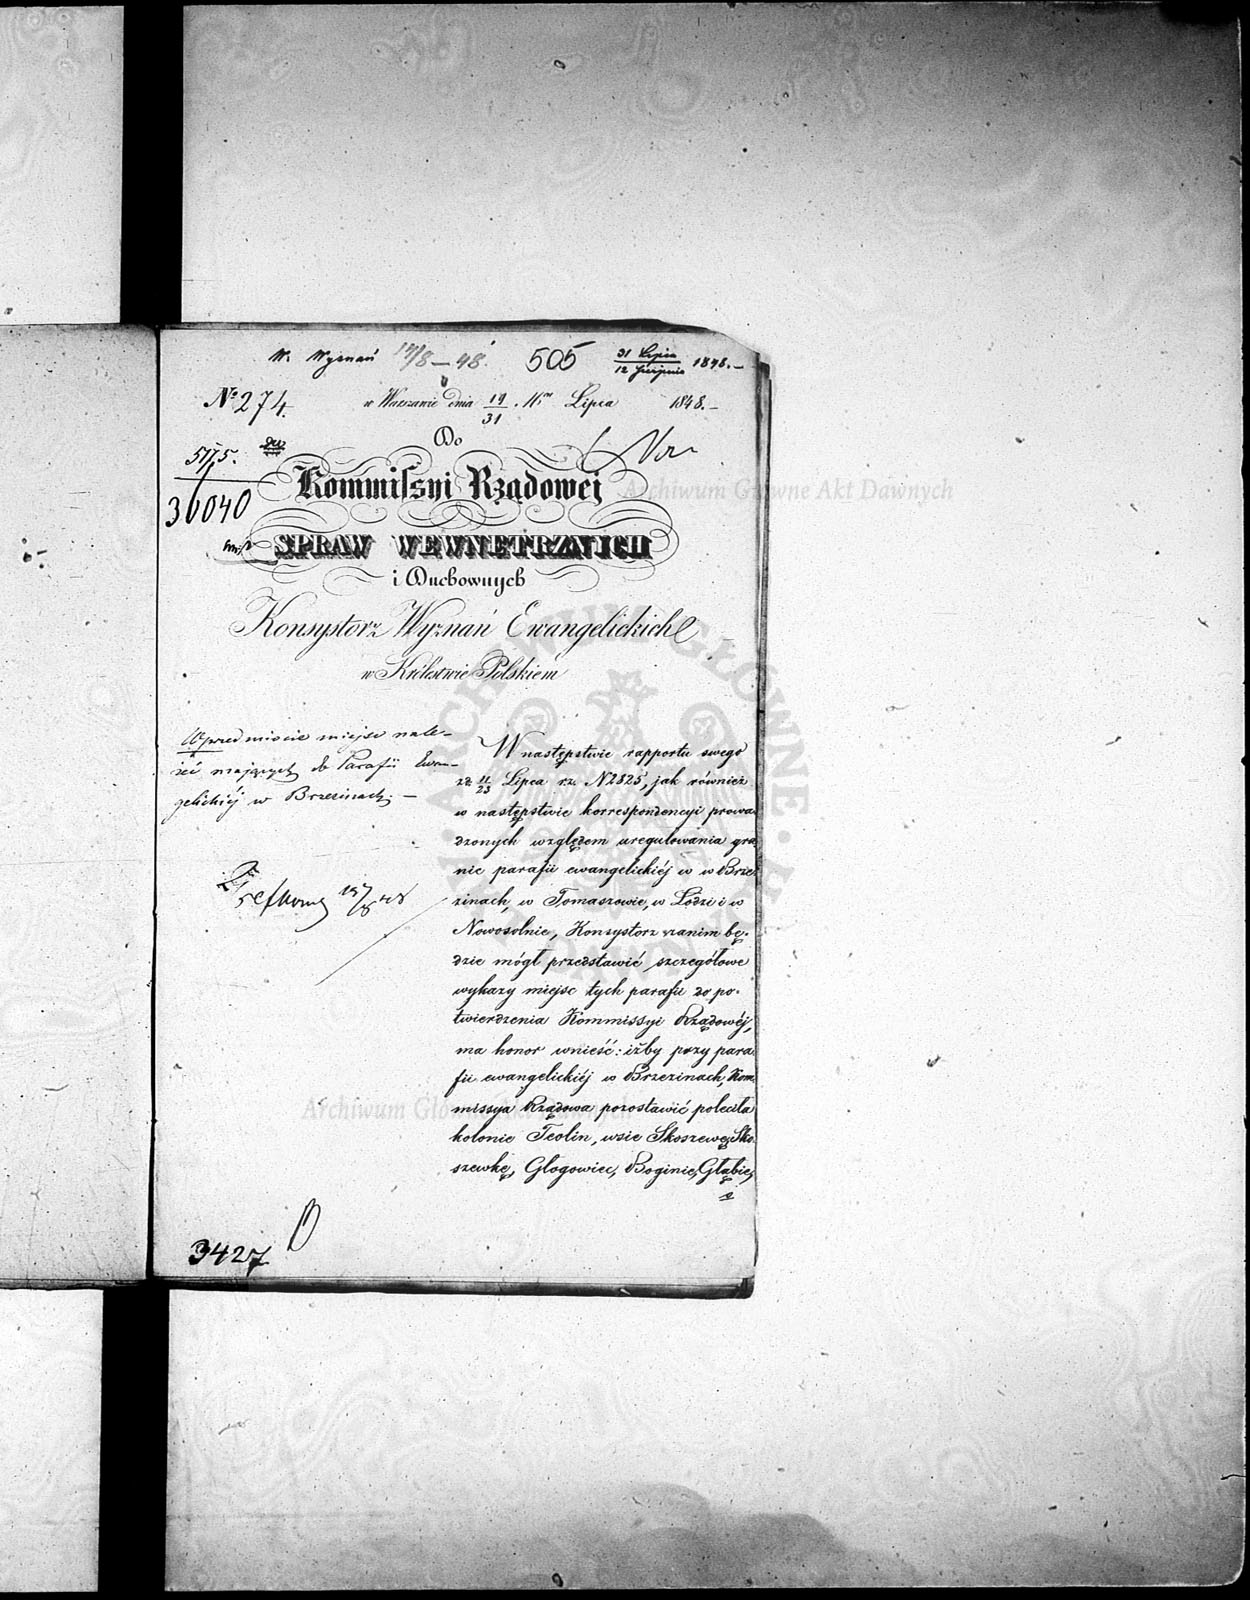 W. Wyznań 17/8 – 48. 505 31 Lipca / 12 Sierpnia 1848.–
No 274. w Warszawie dnia 19/31 . Lipca 1848.–
Do
5175.
36040
Kommissyi Rządowej
SPRAW WEWNĘTRZNYCH
i Duchownych
Konsystorz Wyznań Ewangelickich
w Królestwie Polskiem
W przedmiocie miejsc nale-
żeć mających do Parafii Ewan-
gelickiéj w Brzezinach. –
W następstwie rapportu swego
zd. 11/23 Lipca r.z. N 2825, jak również
w następstwie korrespondencyi prowa
dzonych względem uregulowania gra
nic parafii ewangelickiéj w w Brze
zinach, w Tomaszowie, w Łodzi i w
Nowosolnie, Konsystorz zanim bę-
dzie mógł przedstawić szczegółowe
wykazy miejsc tych parafii do po-
twierdzenia Kommissyi Rządowéj,
ma honor wnieść: iżby przy para
fii ewangelickiéj w Brzezinach, Kom
missya Rządowa pozostawić poleciła
kolonie Teolin, wsie Skoszewę, Sko
szewkę, Głogowiec, Boginie, Głąbie,
3427
Archiwum Główne Akt Dawnych
Archiwum Główne Akt Dawnych